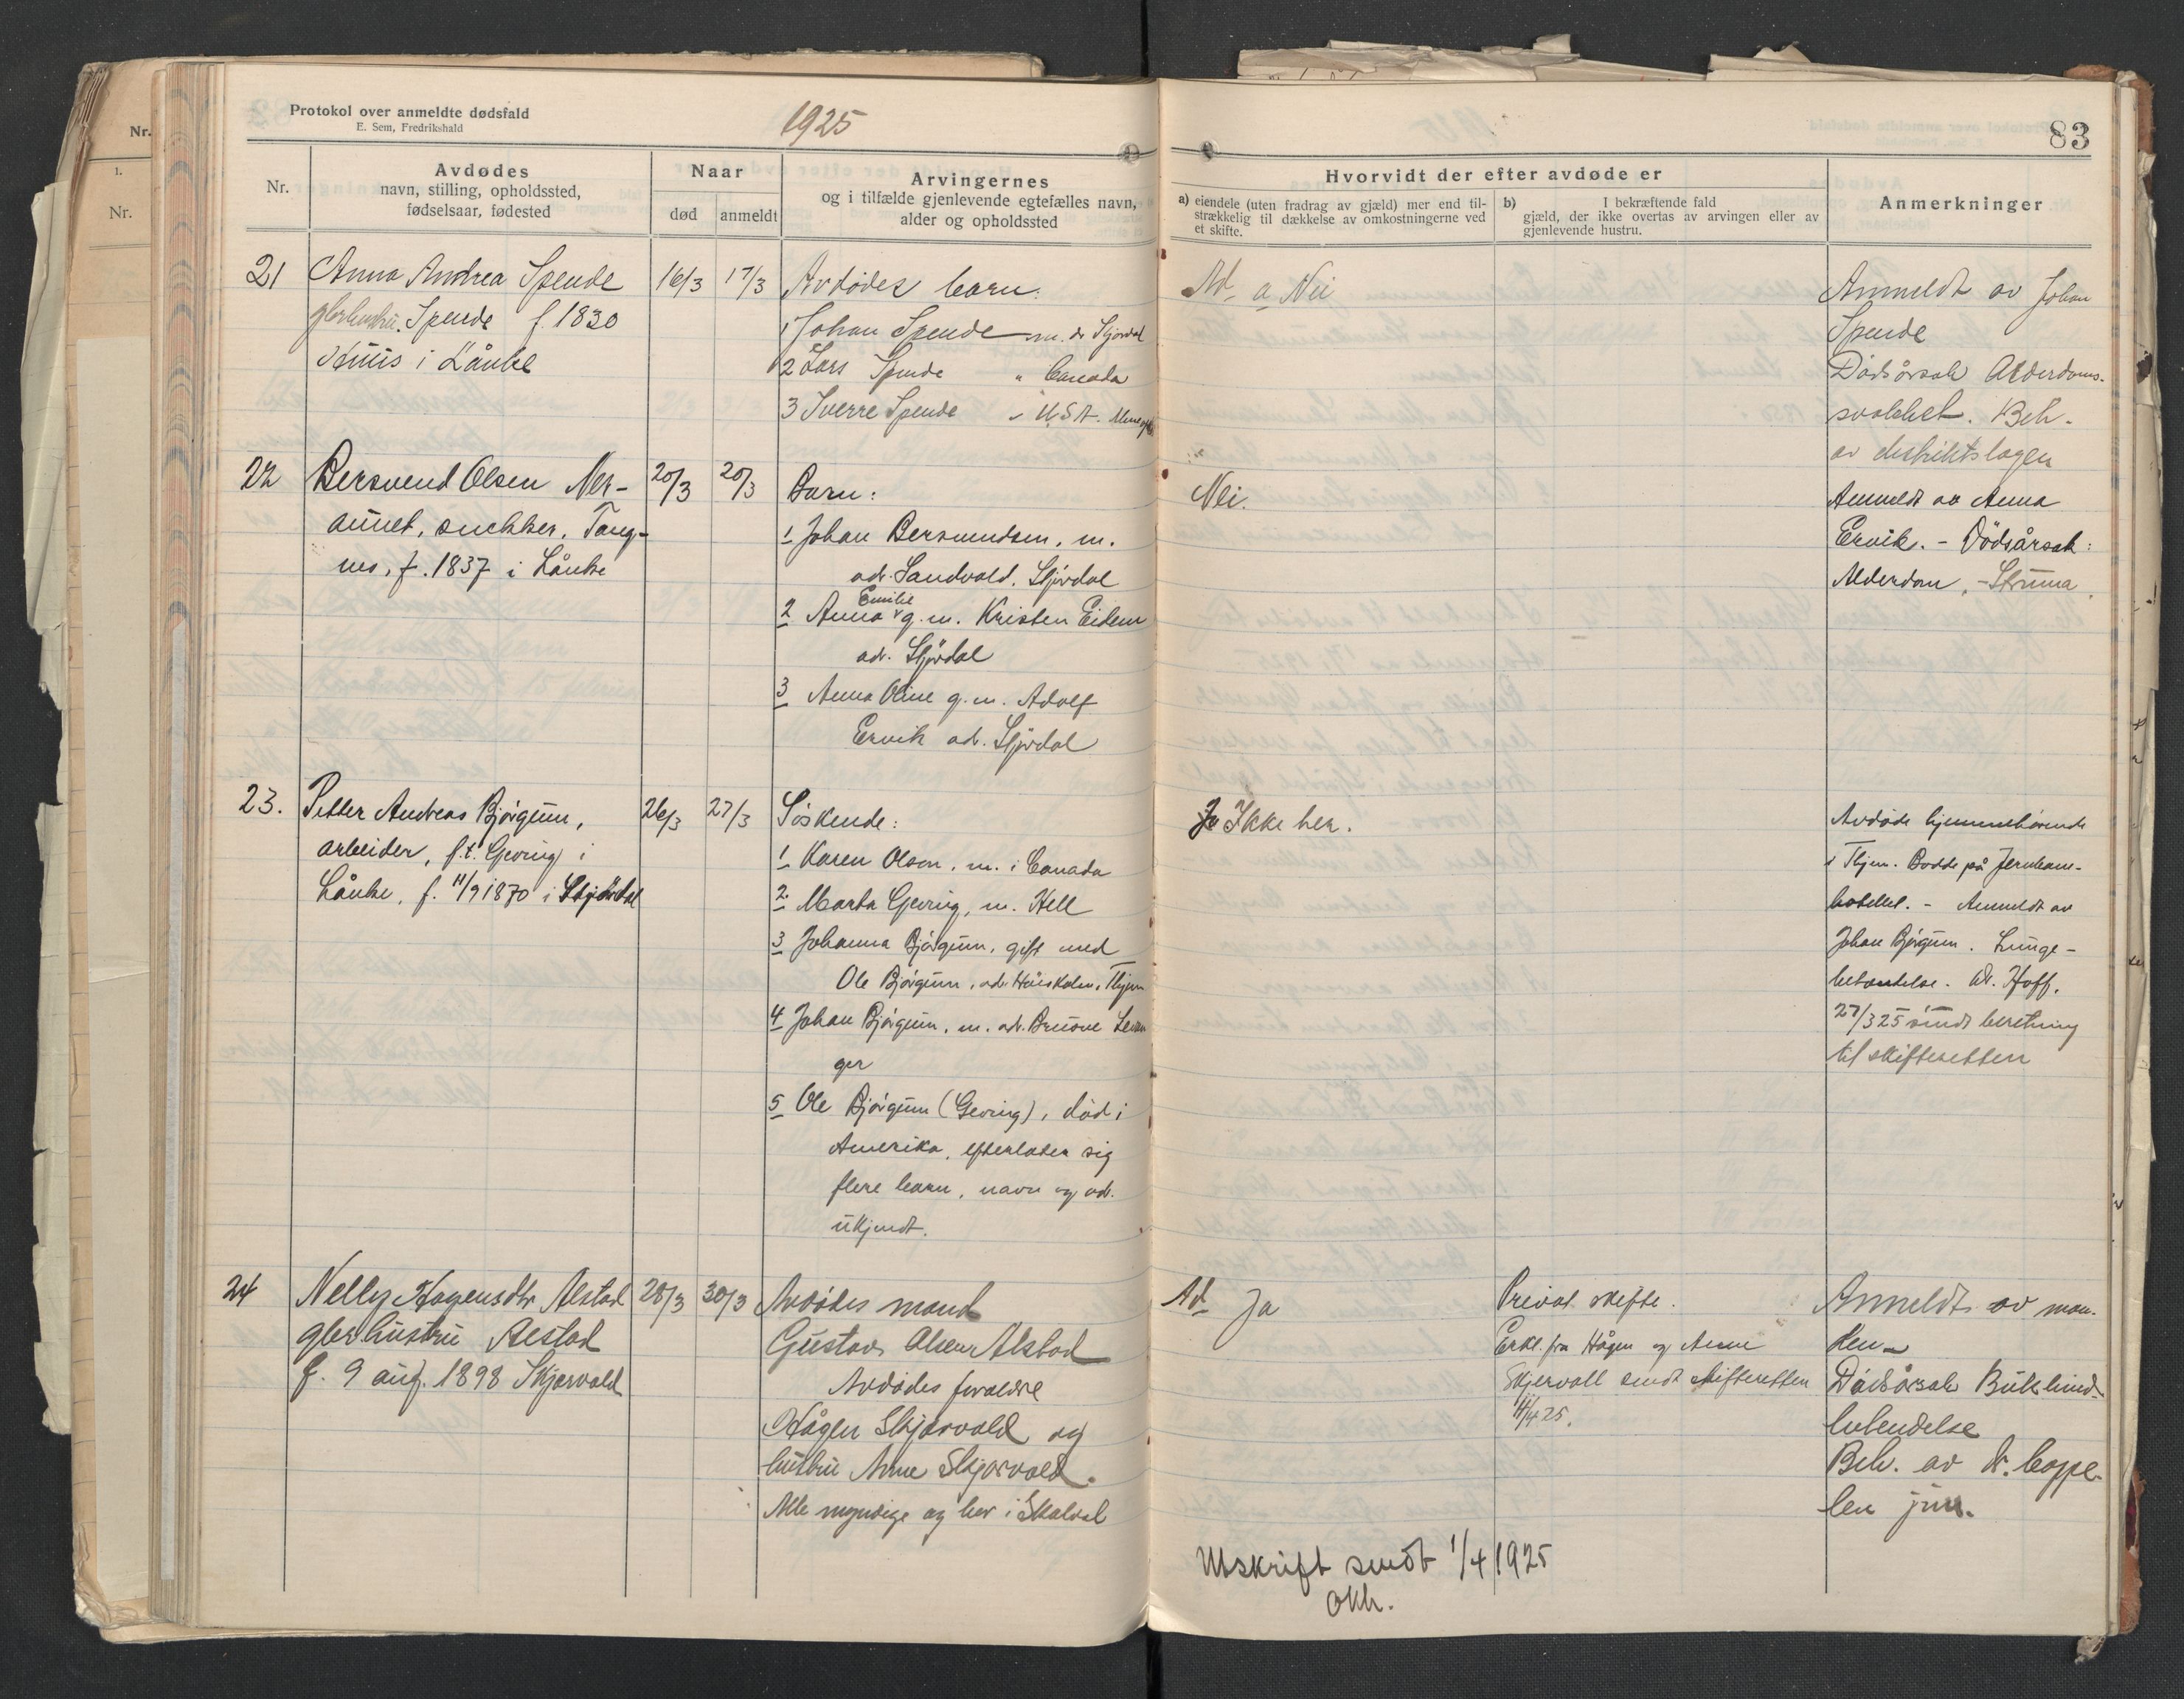 Protokol over anmeldte dødsfald
E. Sem, Fredrikshald
1925
83
Nr.
1.
Nr.
Nr.
Avdødes
navn, stilling, opholdssted,
fødselsaar, fødested
Naar
død
anmeldt
Arvingernes
og i tilfælde gjenlevende egtefælles navn,
alder og opholdssted
Hvorvidt der efter avdøde er
a) eiendele (uten fradrag av gjæld) mer end til-
strækkelig til dækkelse av omkostningerne ved
et skifte.
b) I bekræftende fald
gjæld, der ikke overtas av arvingen eller av
gjenlevende hustru.
Anmerkninger
21
Anna Andrea Spende
Spende f. 1830
i Lånke
16/3
17/3
Avdødes barn:
1 Johan Spende m. ad. Stjørdal
2 Lars Spende " Canada
3 Sverre Spende " U.S.A.
Ad a Nei
Anmeldt av Johan
Spende
Dødsårsak Alderdoms-
svakhet. Beh.
av distriktslægen
22
Bersvend Olsen Ner-
aunet, snekker, Tang-
mo, f. 1837 i Lånke
20/3
20/3
Barn:
1 Johan Bersvendsen, m.
ad. Sandvold, Stjørdal
2 Anna Emilie g. m. Kristen Eidem
ad. Stjørdal
3 Anna Oline g. m. Adolf
Ervik ad. Stjørdal
Nei.
Anmeldt av Anna
Ervik. - Dödsårsak:
Alderdom, - Struma.
23.
Petter Andreas Bjørgum,
arbeider, f.t. Gjevring i
Lånke, f. 11/9 1870 i Stjørdal
26/3
27/3
Søskende:
1 Karen Olsen, m. i Canada
2 Marta Gjevring, m. Hell
3 Johanna Bjørgum, gift med
Ole Bjørgum, ad. Thjem
4 Johan Bjørgum, m. ad. Bruore Levan
ger
5 Ole Bjørgum (Gevring), død i
Amerika, efterlater sig
flere barn, navn og ad.
ukjendt.
Ja Ikke her.
Avdøde hjemmehørende
i Thjem. Bodde på Jernbane-
hotellet. - Anmeldt av
Johan Bjørgum. Lunge-
betændelse. dr. Hoff.
27/3 25 sendt beretning
til skifteretten
24
Nelly Hagensdtr Alstad
gbr.hustru Alstad
f. 9 aug. 1898 Skjervold
28/3
30/3
Avdødes mand
Gustav Olsen Alstad
Avdødes forældre
Hågen Skjervold og
hustru Anne Skjervold.
Alle myndige og bor i Skatval
Ad Ja
Privat skifte.
Erkl. fra Hågen og Anne
Skjervoll sendt skifteretten
11/4 25.
Anmeldt av man-
den
Dødsårsak Bukhind-
betendelse
Beh. av dr. Coppe-
len jun.
Utskrift sendt 1/4 1925
OKh.